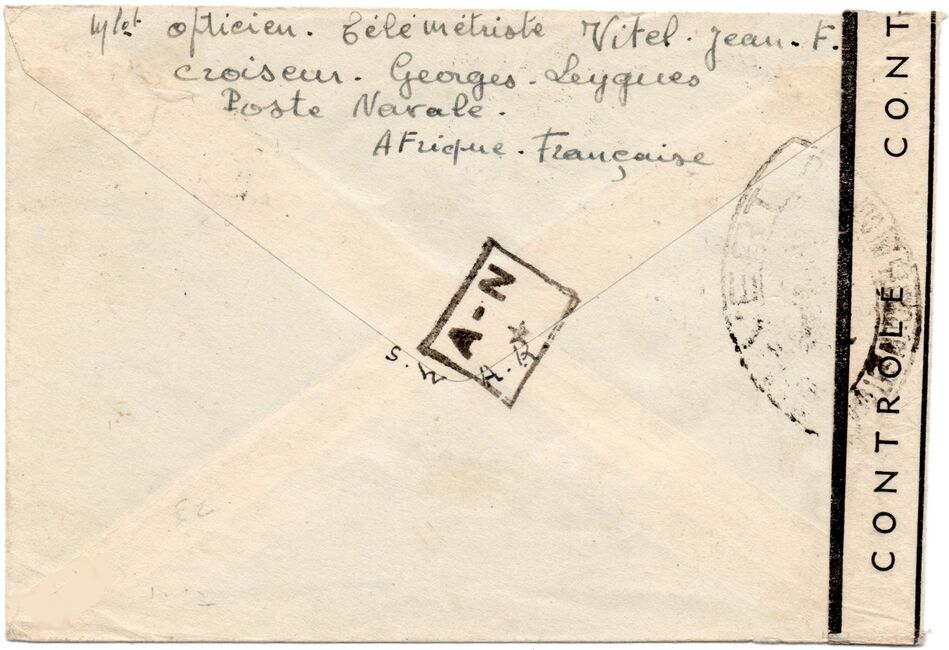 M/lot opticien. Télémétriste Vitel. Jean. F.
Croiseur. Georges. Leygues
Poste Navale.
Afrique. Française
A-N
CONTROLÉ CONT